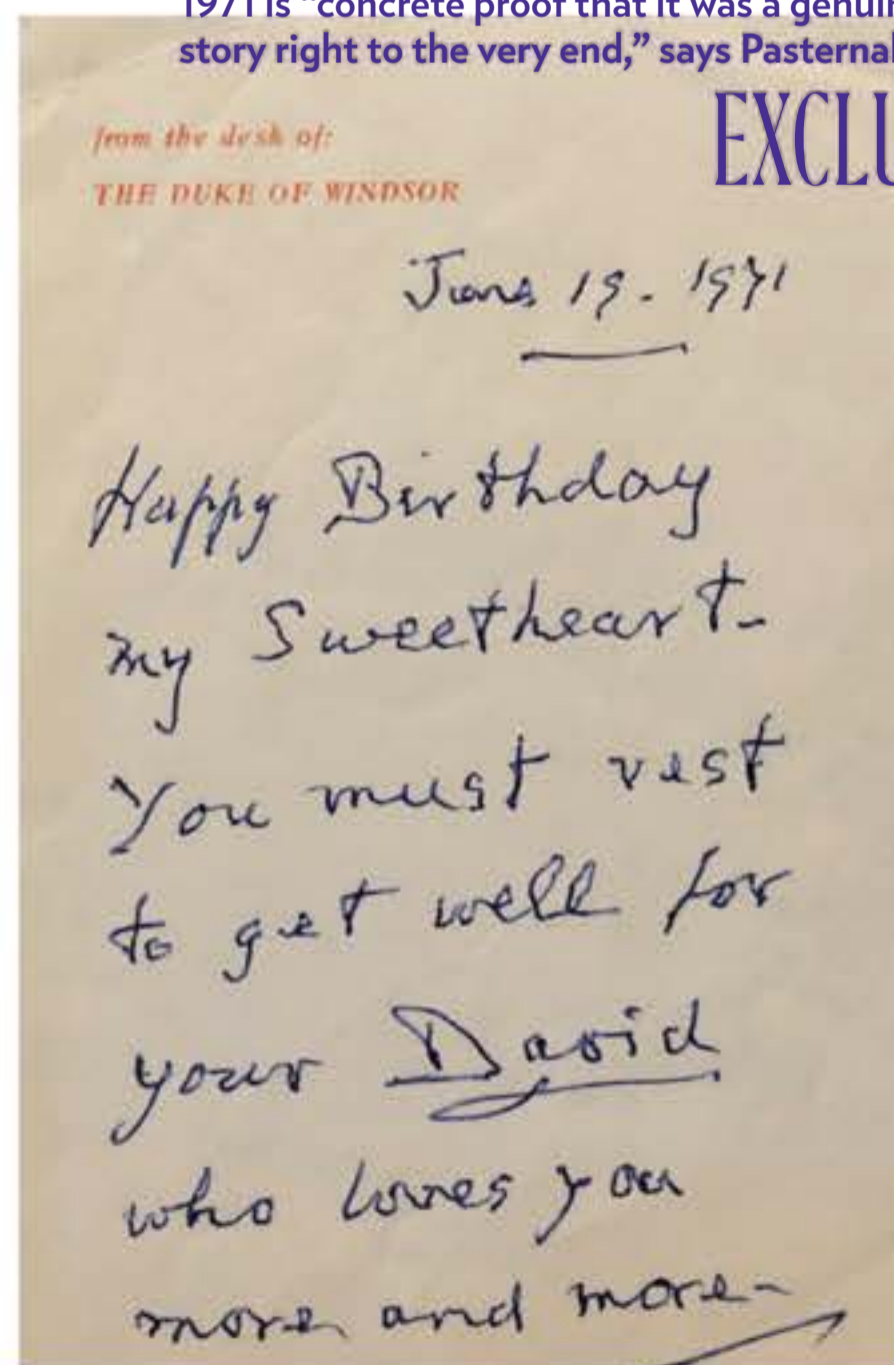 1971 is “concrete proof that it was a genuin
story right to the very end,” says Pasternak
EXCLU
from the desk of:
THE DUKE OF WINDSOR
June 19. 1971
Happy Birthday
my Sweetheart-
You must rest
to get well for
your David
who loves you
more and more-